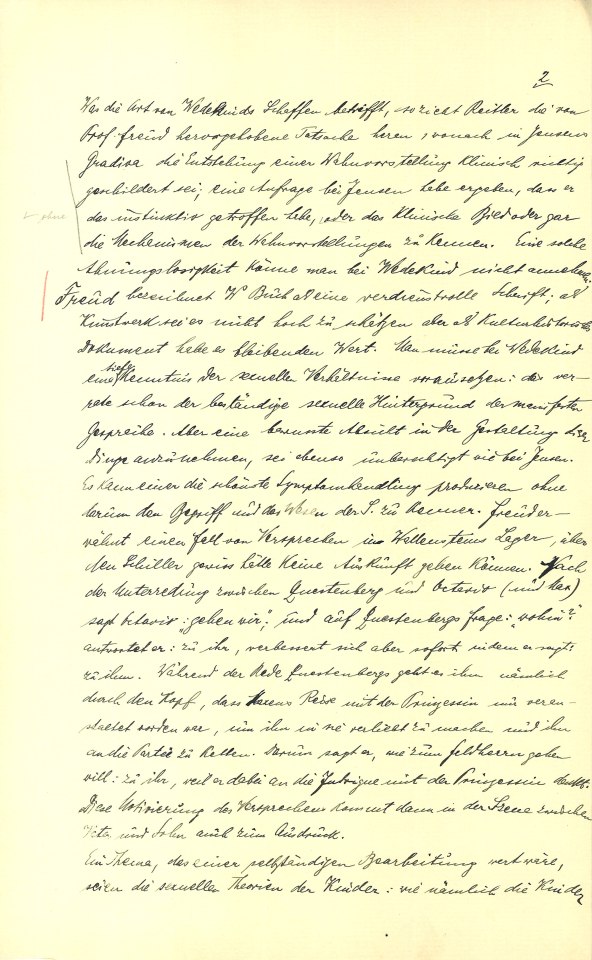 2
Was die Art von Wedekinds Schaffen betrifft, so zieht Reitler die von
Prof. Freud hervorgehobene Tatsache heran, wonach in Jensens
Gradiva die Entstehung einer Wahnvorstellung klinisch richtig
geschildert sei; eine Anfrage bei Jensen habe ergeben, dass er
ohne
das instinktiv getroffen habe, oder das klinische Bild oder gar
die Mechanismen der Wahnvorstellungen zu kennen. Eine solche
Ahnungslosigkeit könne man bei Wedekind nicht annehmen.
Freud bezeichnet W Buch als eine verdienstvolle Schrift; als
Kunstwerk sei es nicht hoch zu schätzen aber als Kulturhistorisches
Dokument habe es bleibenden Wert. Man müsse bei Wedekind
tiefe
eine Kenntnis der sexuellen Verhältnisse voraussetzen: das ver-
rate schon der beständige sexuelle Hintergrund der manifesten
Gespräche. Aber eine bewusste Absicht in der Gestaltung dieser
Dinge anzunehmen, sei ebenso unberechtigt wie bei Jensen.
Es kann einer die schönste Symptomhandlung produzieren ohne
darum den Begriff und das Wesen der S. zu kennen. Freud er-
wähnt einen Fall von Versprechen in Wallensteins Lager, über
den Schiller gewiss hätte keine Auskunft geben können. Nach
der Unterredung zwischen Questenberg und Octavio (und Max)
sagt Octavio: „gehen wir", und auf Questenbergs Frage: „wohin?"
antwortet er: zu ihr, verbessert sich aber sofort indem er sagt:
zu ihm. Während der Rede Questenbergs geht es ihm nämlich
durch den Kopf, dass Maxens Reise mit der Prinzessin nur veran-
staltet worden war, um ihn in sie verliebt zu machen und ihn
an die Partei zu ketten. Darum sagt er, wie zum Feldherrn gehen
will: zu ihr, weil er dabei an die Intrigue mit der Prinzessin denkt.
Diese Motivierung des Versprechens kommt dann in der Szene zwischen
Vater und Sohn auch zum Ausdruck.
Ein Thema, das einer selbständigen Bearbeitung wert wäre,
seien die sexuellen Theorien der Kinder: wie nämlich die Kinder